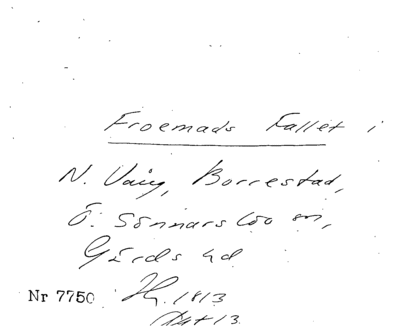 Froemads Fallet i
N. Vång, Borrestad,
Ö. Sönnarslöv sn,
Gärds hd
Nr 7750 Hg. 1813
Akt 13.